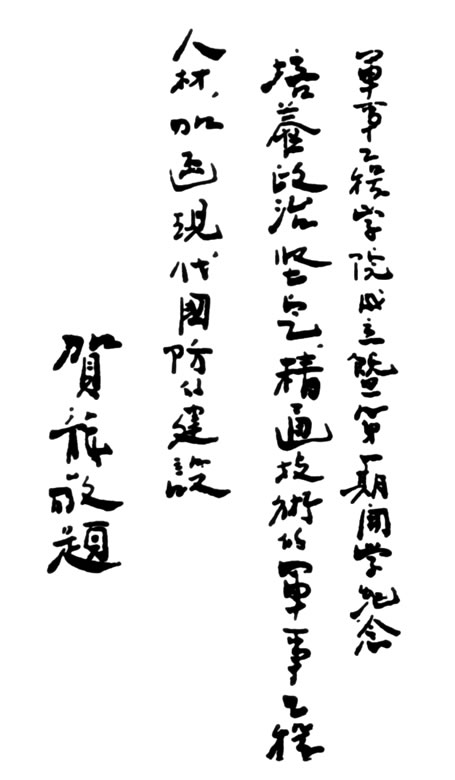 軍事工程学院成立暨第一期開学紀念
培養政治坚定、精通技術的軍事工程
人材，加速現代国防的建設
賀龍敬題